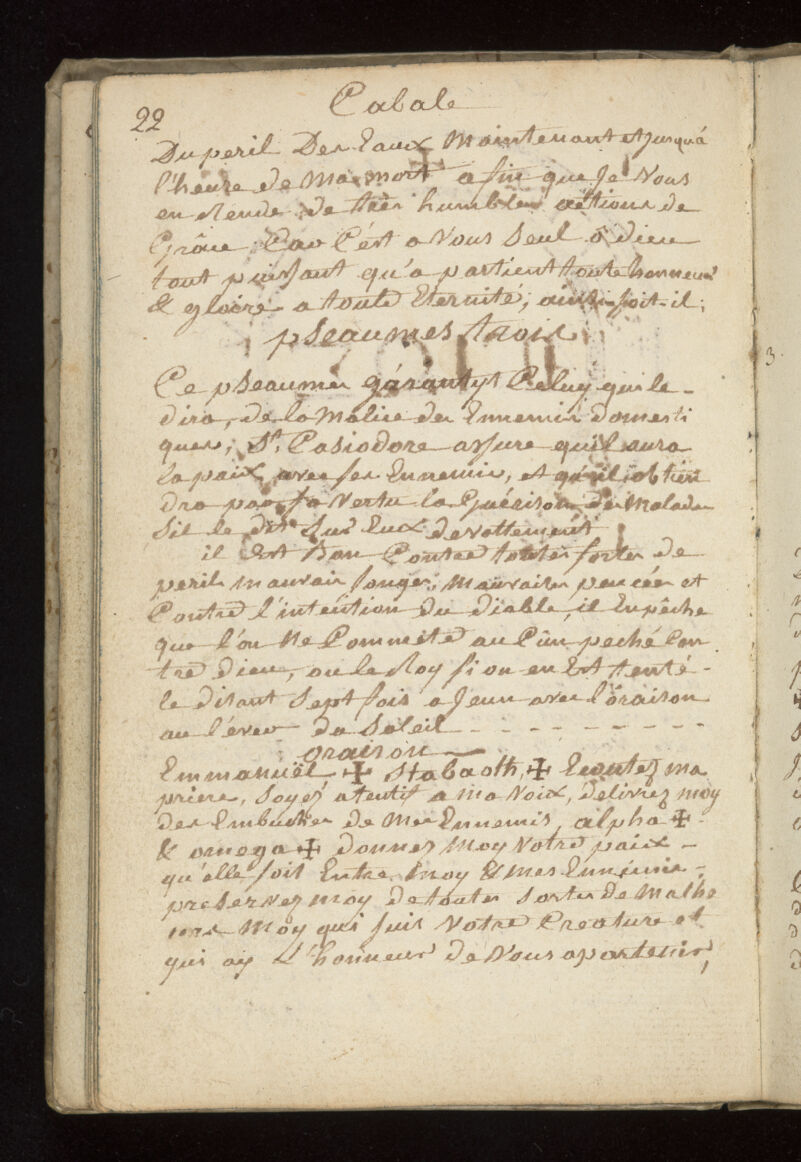 22
Cabale
Du peril Des Eaux Maintenant et jusqu'á
l'heure de Ma mort ✠ afin que Je Vous
en Rende de tres humbles actions de
Grâce, Car C'est a Vous Seul ô dieu
tout puissant qu'a partient toute honneur
& gloire a toute Eternité, ainsi soit-il;
pseaumes trois
Ce pseaumes garantyt Celuy qui le -
dira, de la Malice des Ennemis domesti
ques, St. Casiodore assure qu'il aura
la paix avec ses Ennemis, et qu'il obtien
dra par sa Vertu la Guérison des Malades
Sil le dit Sur Eux devottement
il Est Bon Contre toutes sortes de
perils mauvais songes, Mauvaises pencées et
Contre l'intention du diable, il Enpêche
que l'on Ne Commete au Cun peché Con
tre dieu, ou le Roy si on en Est tenté -
le disant Sept fois a Jeun avec l'oraison
au l'éver du Soleil - - - - - - - -
oraison
Emmanuël ✠ Stabaoth, ✠ Ecoutez ma
priere, Soyez atentif a ma Voix, délivrez moy
des Embuches de Mes Ennemis, alpha ✠
& omega ✠ donnez Moy Votre paix -
qu'elle soit Entre Moy & mes Ennemis -
preservez moy de toutes Sortes de Malhe
urs Moy qui suis Votre Creature et
qui ay L'honneur de Vous apartenir,
3.